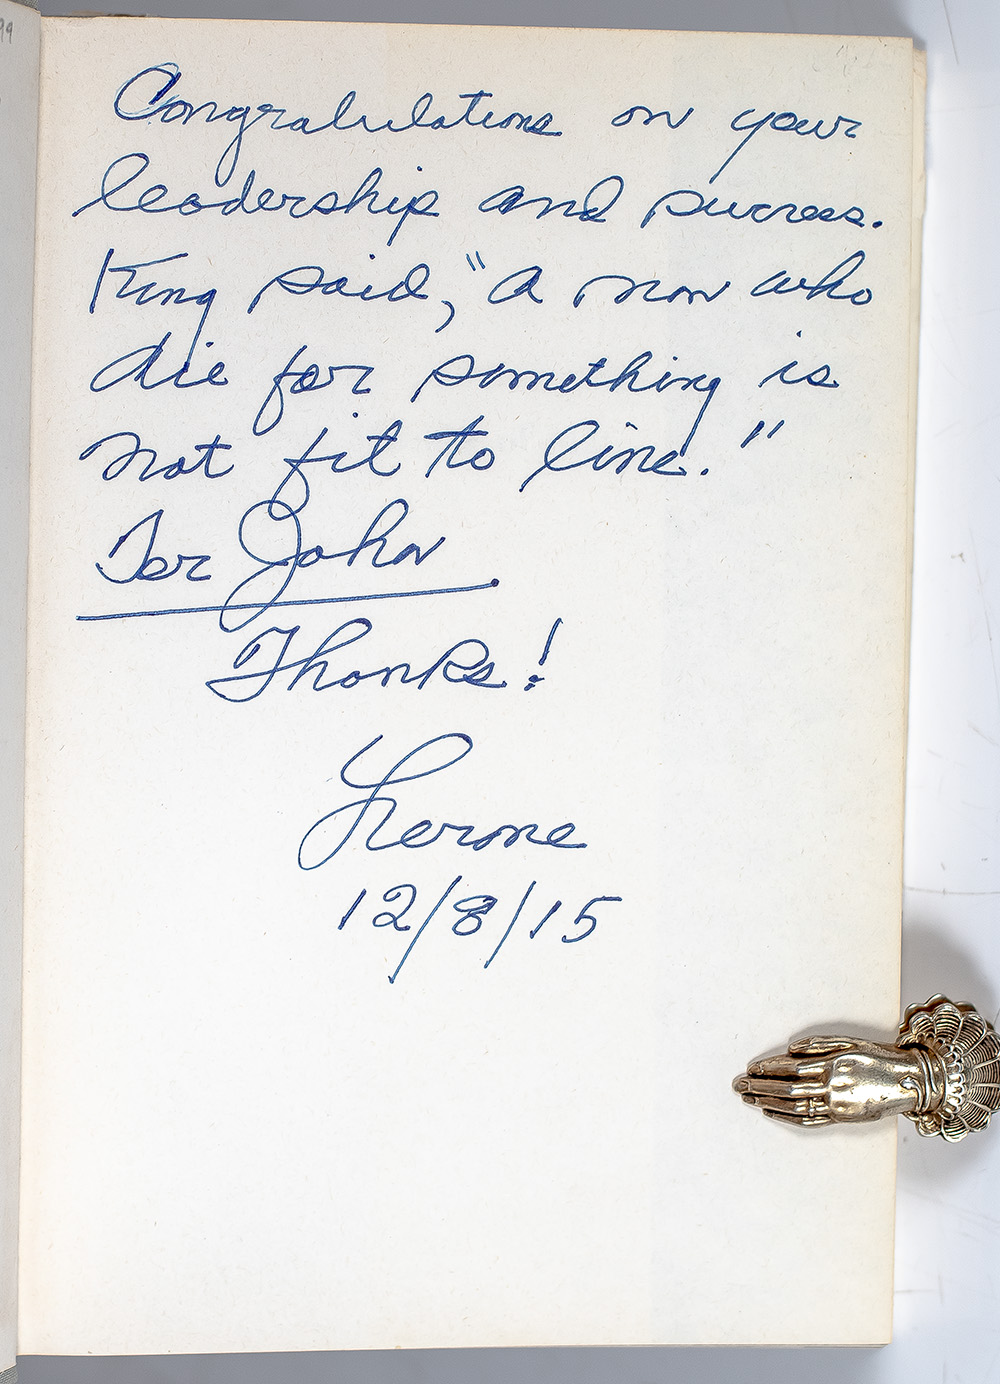 Congratulations on your
leadership and success.
King said, "A man who
die for something is
not fit to live."
For John
Thanks!
Lerone
12/8/15